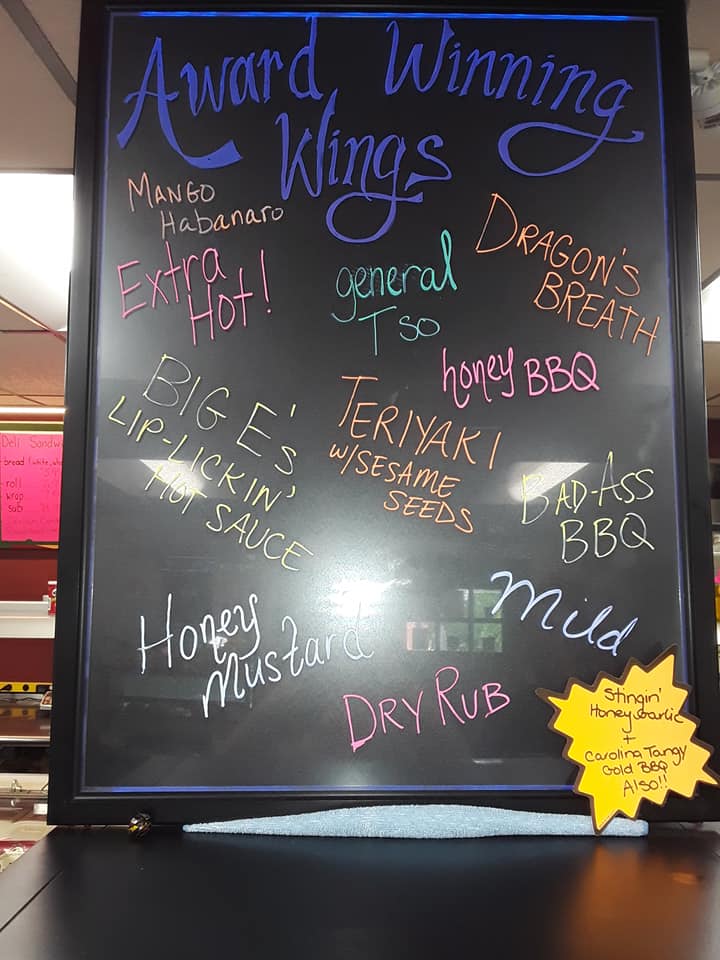 Award Winning
Wings
MANGO
Habanaro
DRAGON'S
BREATH
Extra
Hot!
general
TSO
honey BBQ
BIG E's
LIP-LICKIN'
HOT SAUCE
TERIYAKI
w/SESAME
SEEDS
BAD-ASS
BBQ
Honey
Mustard
Mild
DRY RUB
Stingin'
Honey Garlic
+
Carolina Tangy
Gold BBQ
Also!!
Deli Sandw
bread
roll
wrap
sub